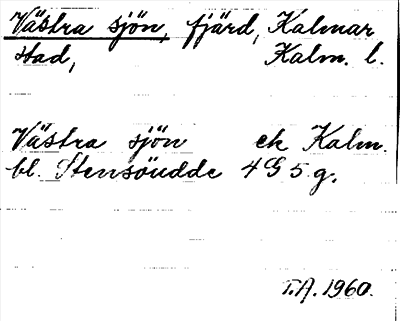 Västra sjön, fjärd, Kalmar
stad, Kalm. l.
Västra sjön ek Kalm.
bl. Stensöudde 4G 5 g.
T.A. 1960.